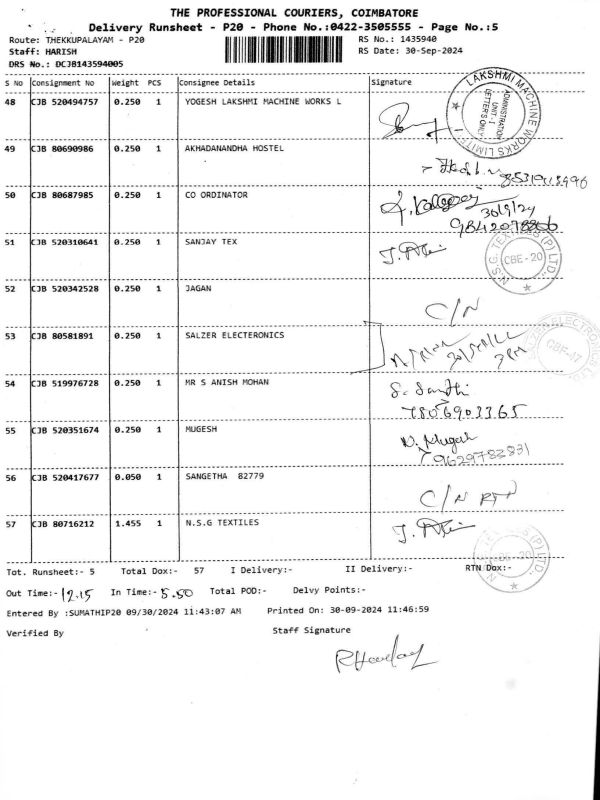 THE PROFESSIONAL COURIERS, COIMBATORE
Delivery Runsheet - P20 - Phone No.:0422-3505555 - Page No.:5
Route: THEKKUPALAYAM - P20 RS No.: 1435940
Staff: HARISH RS Date: 30-Sep-2024
DRS No.: DCJB143594005
S No Consignment No Weight PCS Consignee Details Signature
48 CJB 520494757 0.250 1 YOGESH LAKSHMI MACHINE WORKS L
LAKSHMI MACHINE WORKS LIMITED
ADMINISTRATION
UNIT-I
LETTER'S ONLY
49 CJB 80690986 0.250 1 AKHADANANDHA HOSTEL
50 CJB 80687985 0.250 1 CO ORDINATOR
30/9/24
51 CJB 520310641 0.250 1 SANJAY TEX
N.S.G. TEXTILES (P) LTD.,
CBE-20
52 CJB 520342528 0.250 1 JAGAN
C/N
53 CJB 80581891 0.250 1 SALZER ELECTERONICS
54 CJB 519976728 0.250 1 MR S ANISH MOHAN
S. Santhi
7806903365
55 CJB 520351674 0.250 1 MUGESH
N. Mugesh
9629782831
56 CJB 520417677 0.050 1 SANGETHA 82779
C/N RTN
57 CJB 80716212 1.455 1 N.S.G TEXTILES
Tot. Runsheet:- 5 Total Dox:- 57 I Delivery:- II Delivery:- RTN Dox:-
Out Time:- 12.15 In Time:- 5.50 Total POD:- Delvy Points:-
Entered By :SUMATHIP20 09/30/2024 11:43:07 AM Printed On: 30-09-2024 11:46:59
Verified By Staff Signature